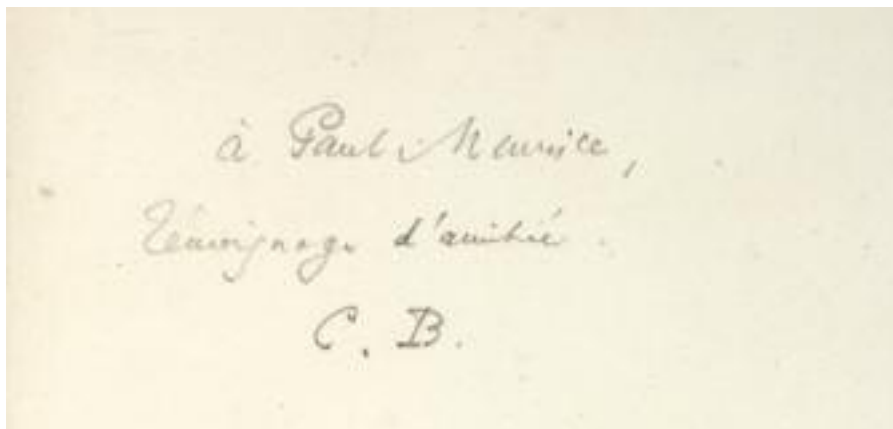 à Paul Meurice,
Témoignage d'amitié.
C. B.